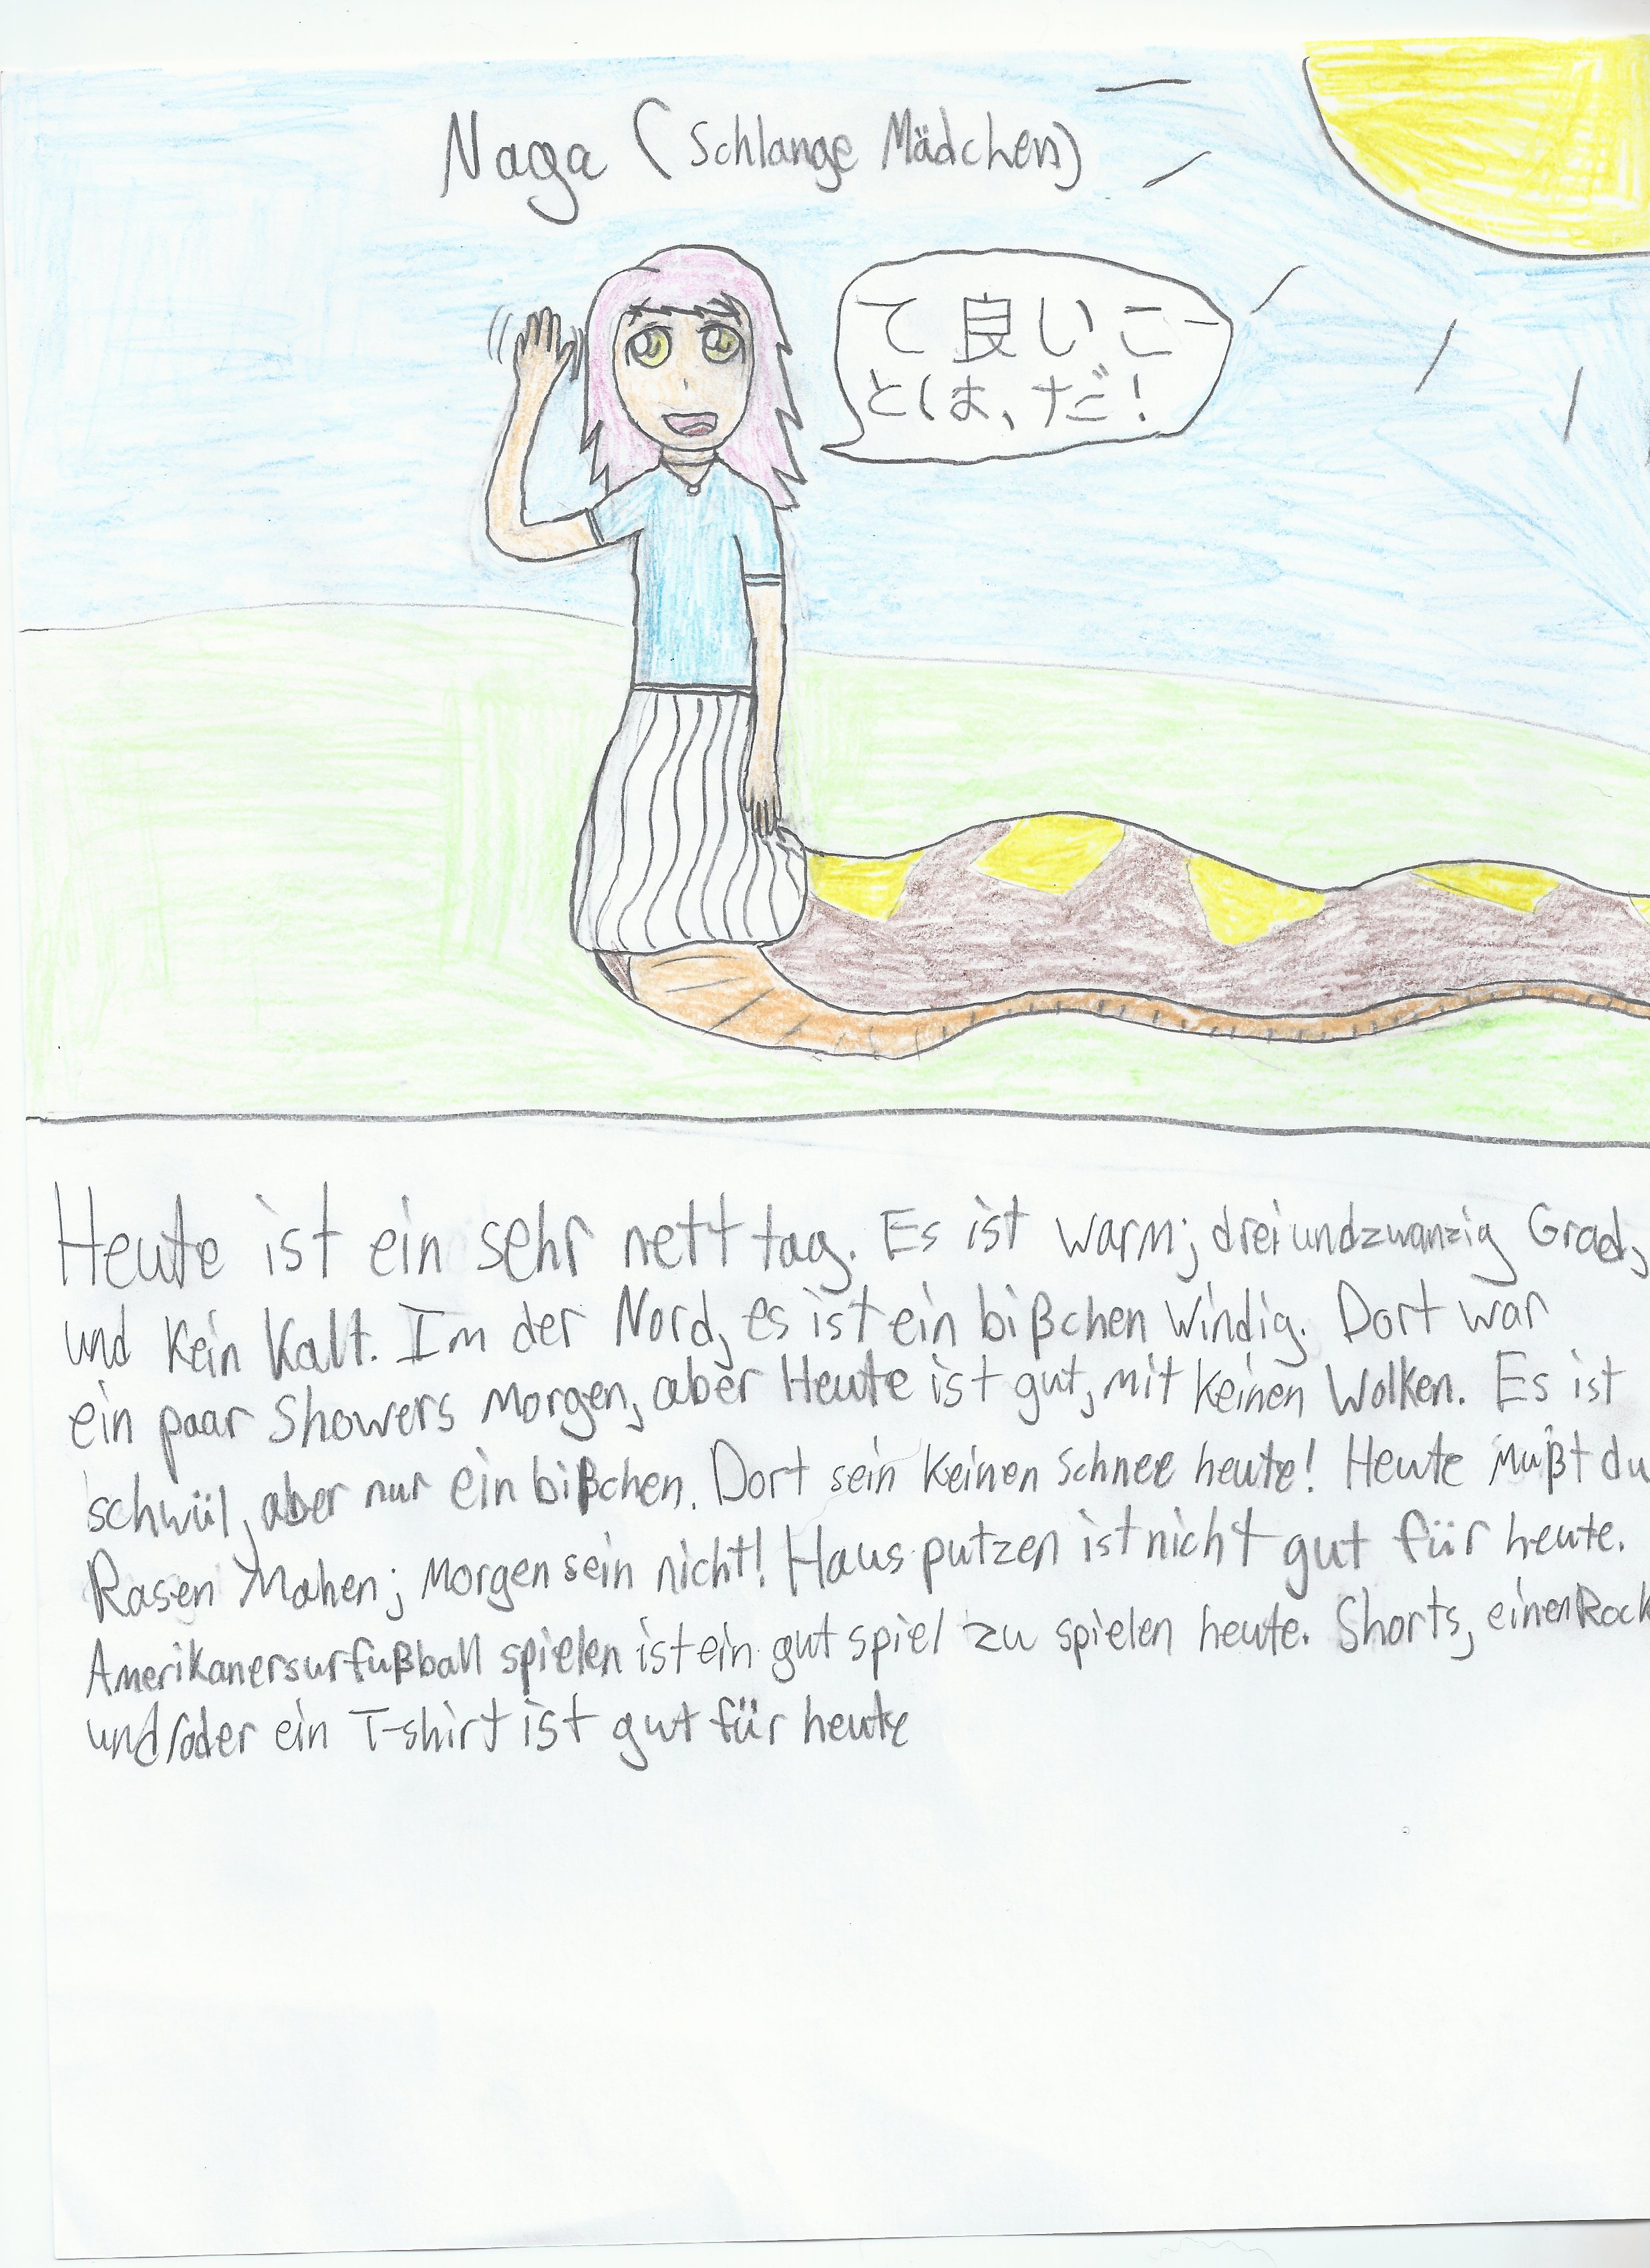 Naga (Schlange Mädchen)
て良いこ
とは、だ!
Heute ist ein sehr nett tag. Es ist warm; dreiundzwanzig Grad,
und kein kalt. Im der Nord, es ist ein bißchen windig. Dort war
ein paar Showers morgen, aber Heute ist gut, mit keinen Wolken. Es ist
schwül, aber nur ein bißchen. Dort sein keinen schnee heute! Heute mußt du
Rasen Mahen; morgen sein nicht! Haus putzen ist nicht gut für heute.
Amerikanersurfußball spielen ist ein gut spiel zu spielen heute. Shorts, einen Rock
und/oder ein T-shirt ist gut für heute